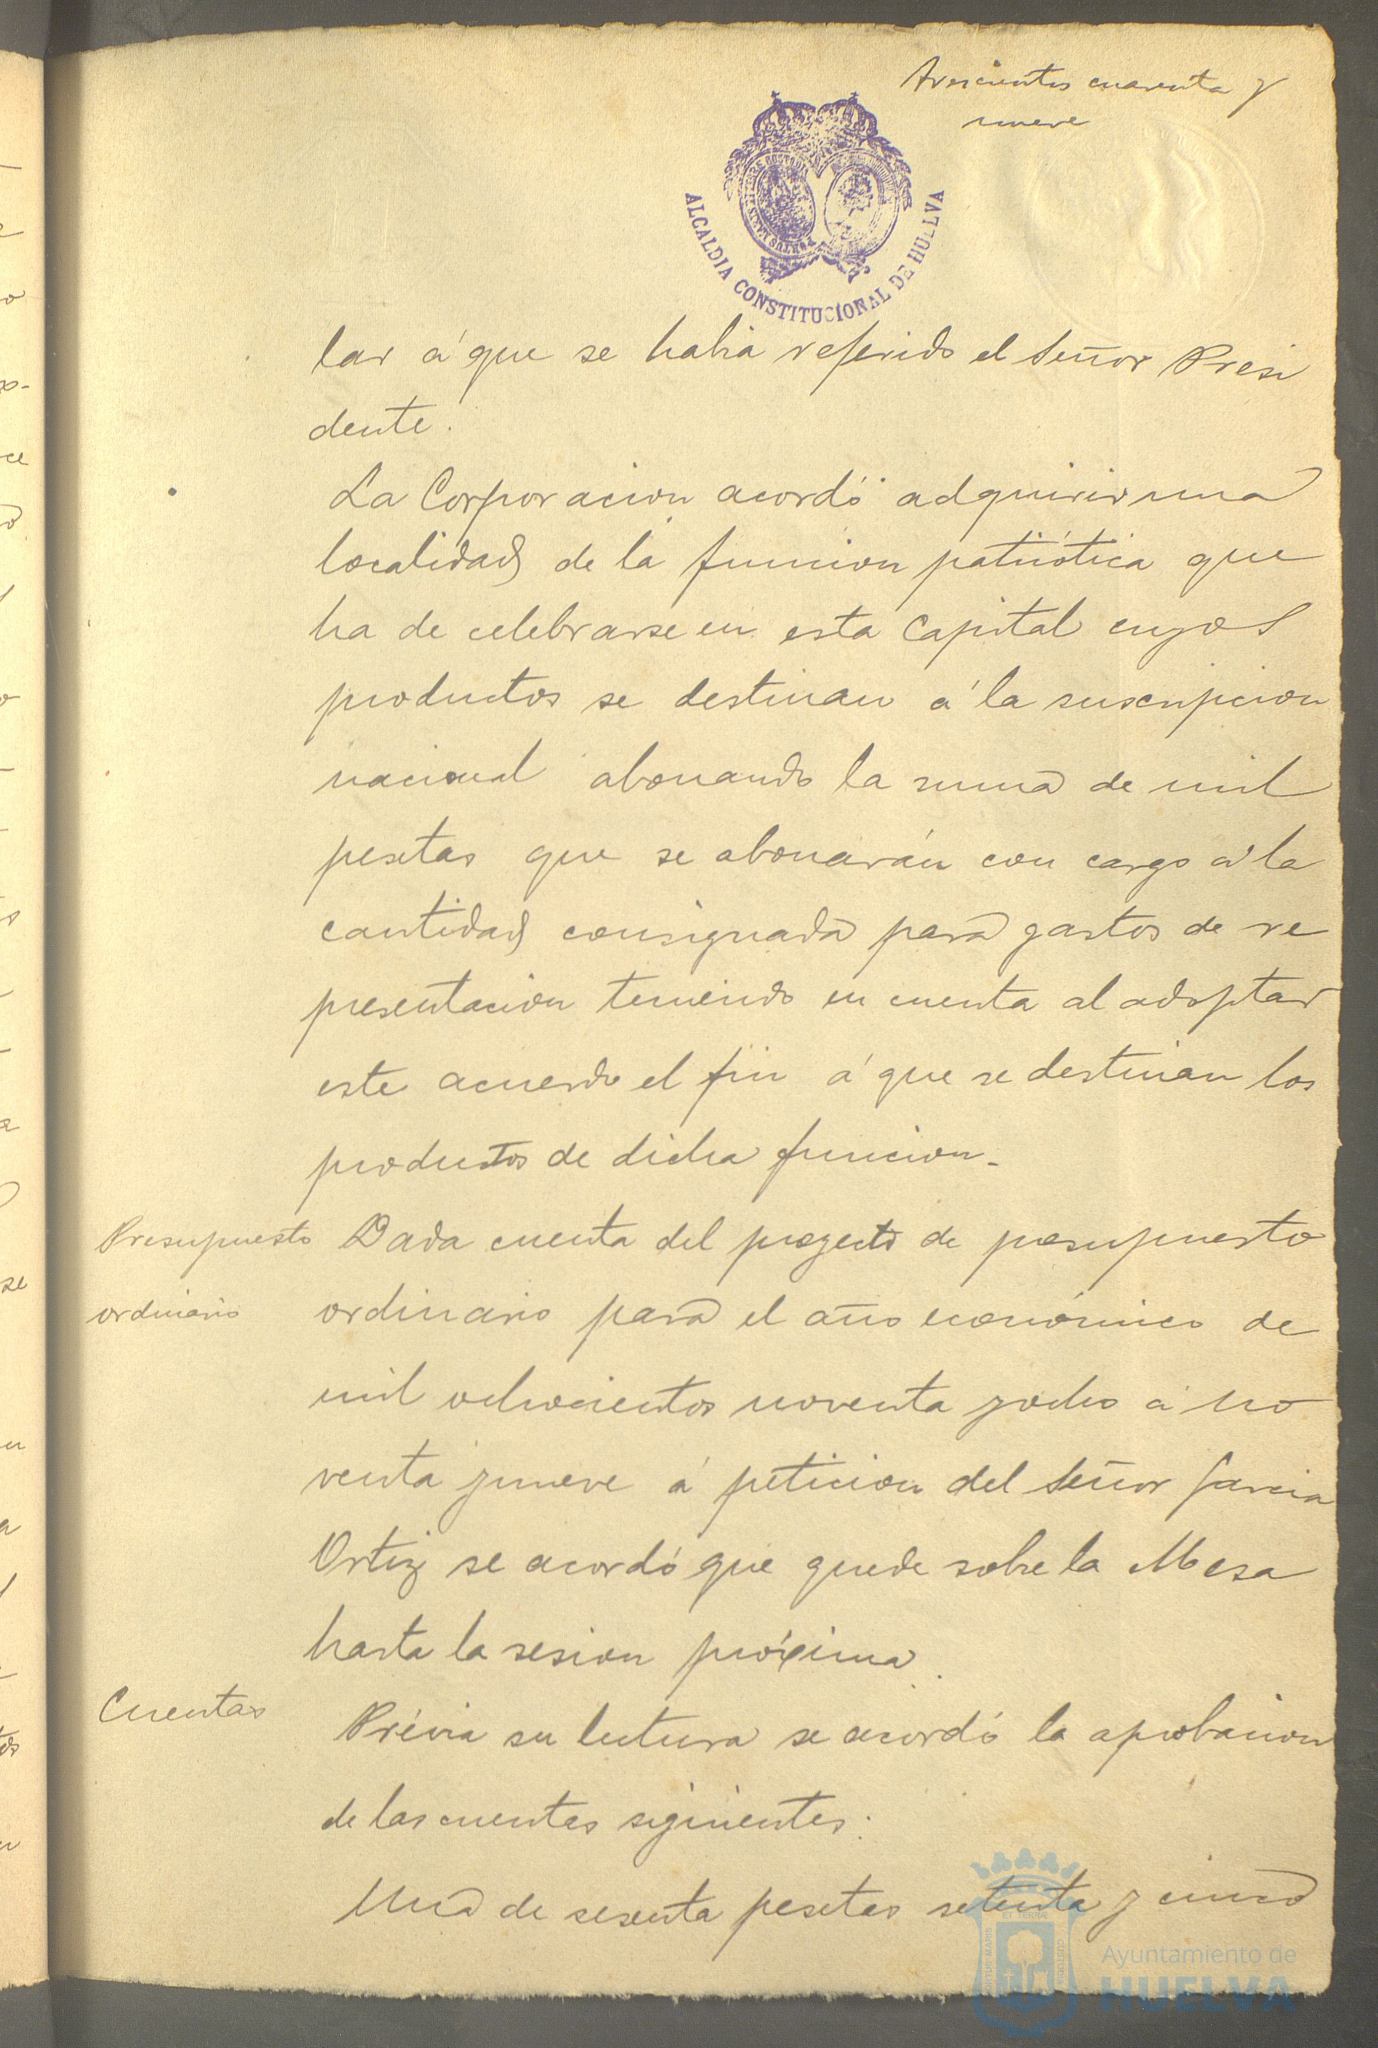 trescientos cuarenta y
nueve
ALCALDIA CONSTITUCIONAL DE HUELVA
lar á que se habia referido el Señor Presi
dente.
La Corporacion acordó adquirir una
localidad de la funcion patriótica que
ha de celebrarse en esta Capital cuyos
productos se destinan á la suscripcion
nacional abonando la suma de mil
pesetas que se abonarán con cargo á la
cantidad consignada para gastos de re
presentacion teniendo en cuenta al adoptar
este acuerdo el fin á que se destinan los
productos de dicha funcion.
Presupuesto
ordinario
Dada cuenta del proyecto de presupuesto
ordinario para el año económico de
mil ochocientos noventa y ocho á no
venta y nueve á peticion del Señor Garcia
Ortiz se acordó que quede sobre la Mesa
hasta la sesion próxima.
Cuentas
Prévia su lectura se acordó la aprobacion
de las cuentas siguientes:
Una de sesenta pesetas setenta y cinco
Ayuntamiento de
HUELVA